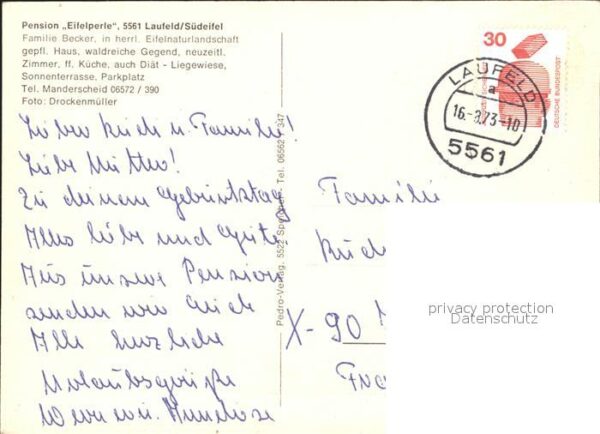 Pension „Eifelperle", 5561 Laufeld/Südeifel
Familie Becker, in herrl. Eifelnaturlandschaft
gepfl. Haus, waldreiche Gegend, neuzeitl.
Zimmer, ff. Küche, auch Diät - Liegewiese,
Sonnenterrasse, Parkplatz
Tel. Manderscheid 06572 / 390
Foto: Drockenmüller
Lieber u. Familie!
Liebe Mutter!
Zu deinem Geburtstag
Alles liebe und Gute
Aus unsere Pension
senden wir Euch
Alle herzliche
Urlaubsgrüße
Pedro-Verlag, 5522 Tel. 06562 347
30
DEUTSCHE BUNDESPOST
LAUFELD
a
16.-8.73-10
5561
Familie
X-90
privacy protection
Datenschutz